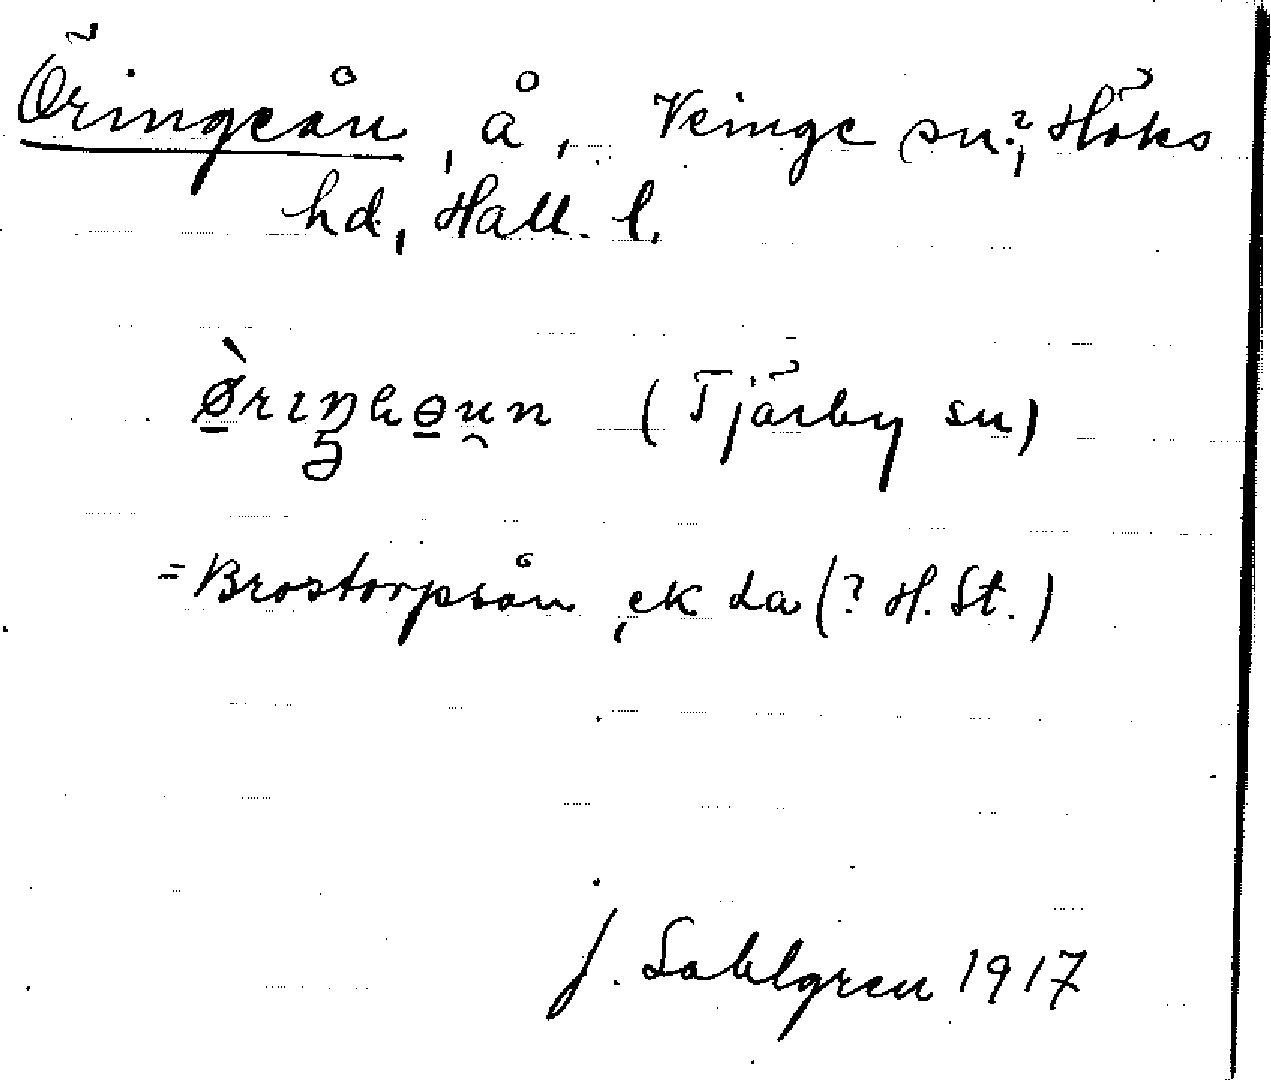 Öringeån, å, Veinge sn?, Höks
hd, Hall. l.
(Tjärby sn)
= Brostorpsån, ek La (? H. St.)
J. Sahlgren 1917